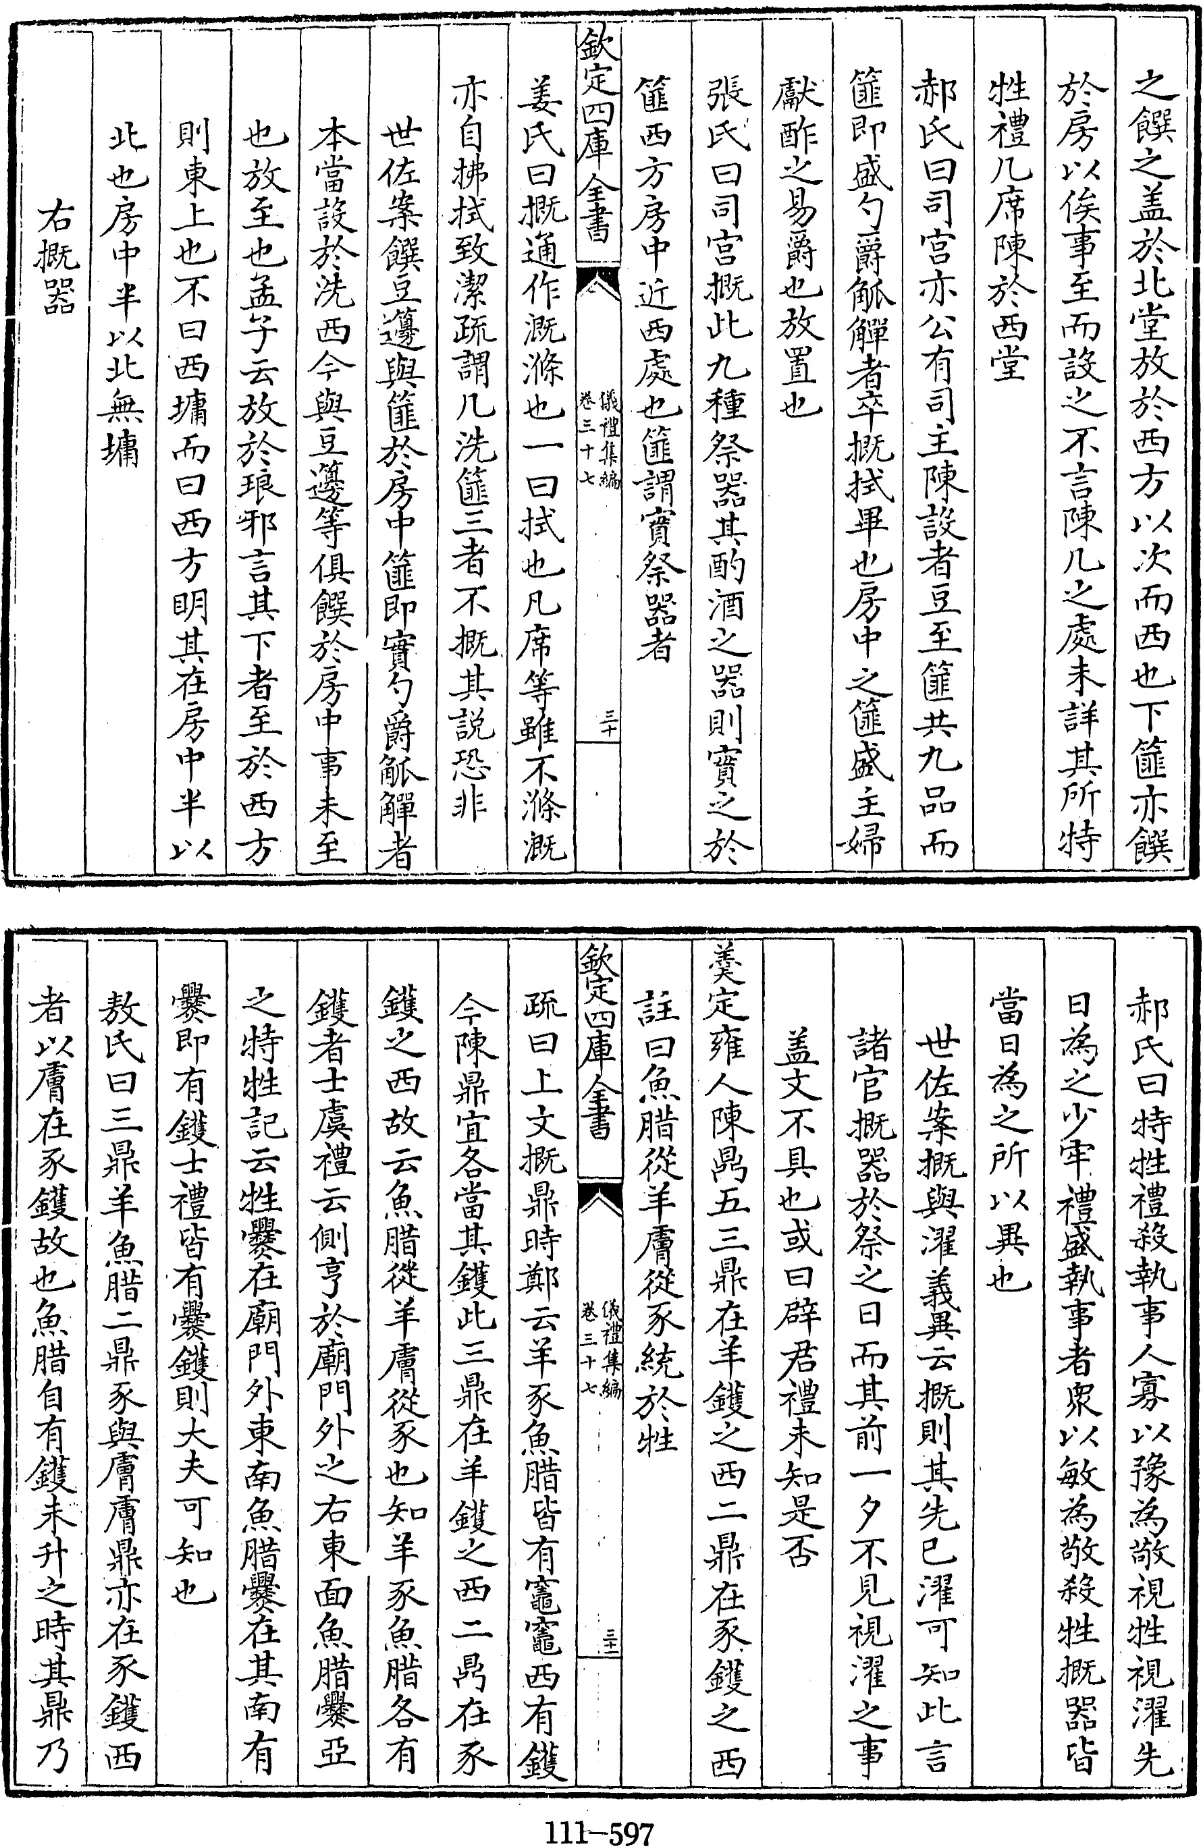 之饌之盖於北堂放於西方以次而西也下篚亦饌
於房以俟事至而設之不言陳几之處未詳其所特
牲禮几席陳於西堂
郝氏曰司宫亦公有司主陳設者豆至篚共九品而
篚即盛勺爵觚觶者卒概拭畢也房中之篚盛主婦
獻酢之易爵也放置也
張氏曰司宫概此九種祭器其酌酒之器則實之於
篚西方房中近西處也篚謂實祭器者
欽定四庫全書
儀禮集編
卷三十七
三十
姜氏曰概通作溉滌也一曰拭也凡席等雖不滌溉
亦自拂拭致潔疏謂几洗篚三者不概其説恐非
世佐案饌豆籩與篚於房中篚即實勺爵觚觶者
本當設於洗西今與豆籩等俱饌於房中事未至
也放至也孟子云放於琅邪言其下者至於西方
則東上也不曰西墉而曰西方明其在房中半以
北也房中半以北無墉
右概器
郝氏曰特牲禮殺執事人寡以豫為敬視牲視濯先
日為之少牢禮盛執事者衆以敏為敬殺牲概器皆
當日為之所以異也
世佐案概與濯義異云概則其先已濯可知此言
諸官概器於祭之日而其前一夕不見視濯之事
盖文不具也或曰辟君禮未知是否
羹定雍人陳鼎五三鼎在羊鑊之西二鼎在豕鑊之西
註曰魚腊從羊膚從豕統於牲
欽定四庫全書
儀禮集編
卷三十七
三十一
疏曰上文概鼎時鄭云羊豕魚腊皆有竈竈西有鑊
今陳鼎宜各當其鑊此三鼎在羊鑊之西二鼎在豕
鑊之西故云魚腊從羊膚從豕也知羊豕魚腊各有
鑊者士虞禮云側亨於廟門外之右東面魚腊爨亞
之特牲記云牲爨在廟門外東南魚腊爨在其南有
爨即有鑊士禮皆有爨鑊則大夫可知也
敖氏曰三鼎羊魚腊二鼎豕與膚膚鼎亦在豕鑊西
者以膚在豕鑊故也魚腊自有鑊未升之時其鼎乃
111-597